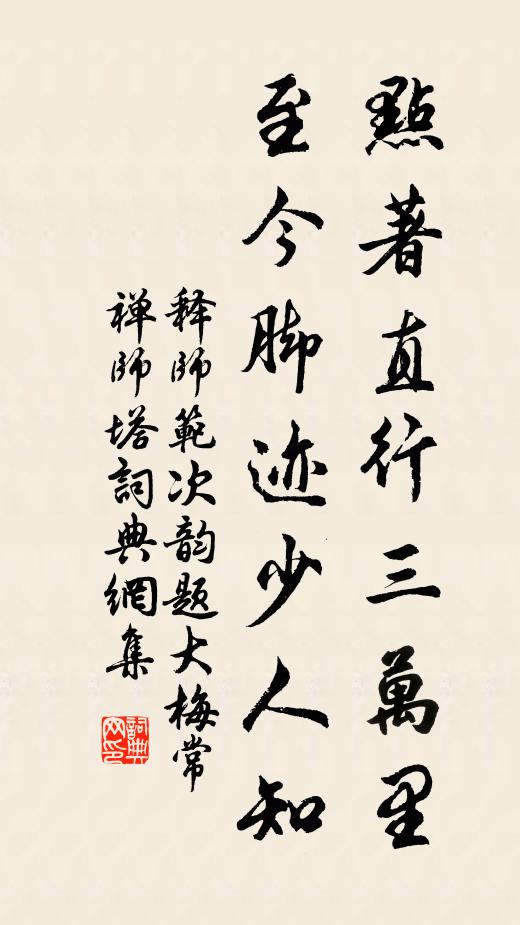 點著直行三萬里
至今脚迹少人知
释師範次韵题大梅常
禅師塔詞典網集
詞典网印